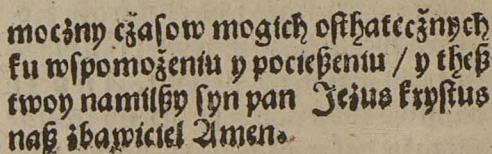 mocżny cżaſow mogich oſthatecżnych
ku wſpomożeniu y pocießeniu / y theß
twoy namilßy ſyn pan Jeżus kryſtus
naß żbawiciel Amen.